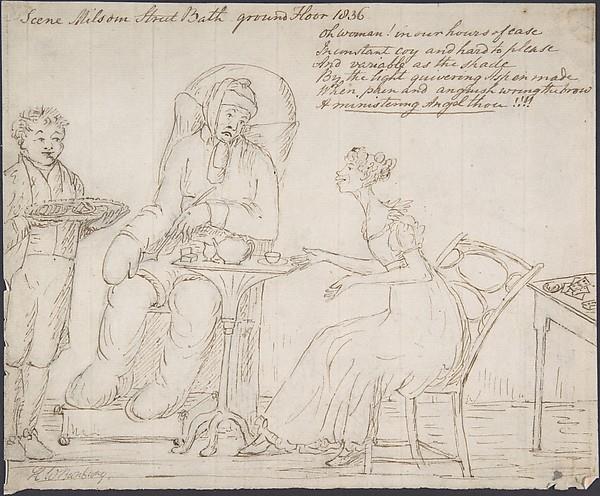 Scene Milsom Street Bath ground Floor 1836
Oh woman! in our hours of ease
Inconstant coy and hard to please
And variable as the shade
By the light quivering Aspen made
When pain and anguish wring the brow
A ministering Angel thou !!!!